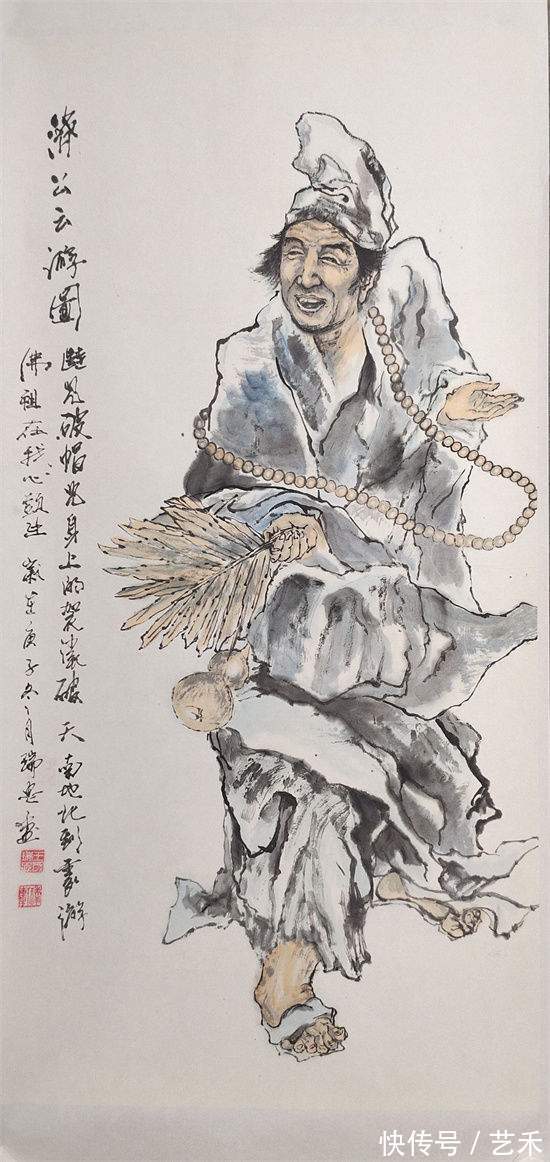 濟公云游圖
兒破帽兒身上的袈裟破 天南地北到雲游
佛祖在我心頭 歲在庚子冬月瑞畫
快传号/艺禾